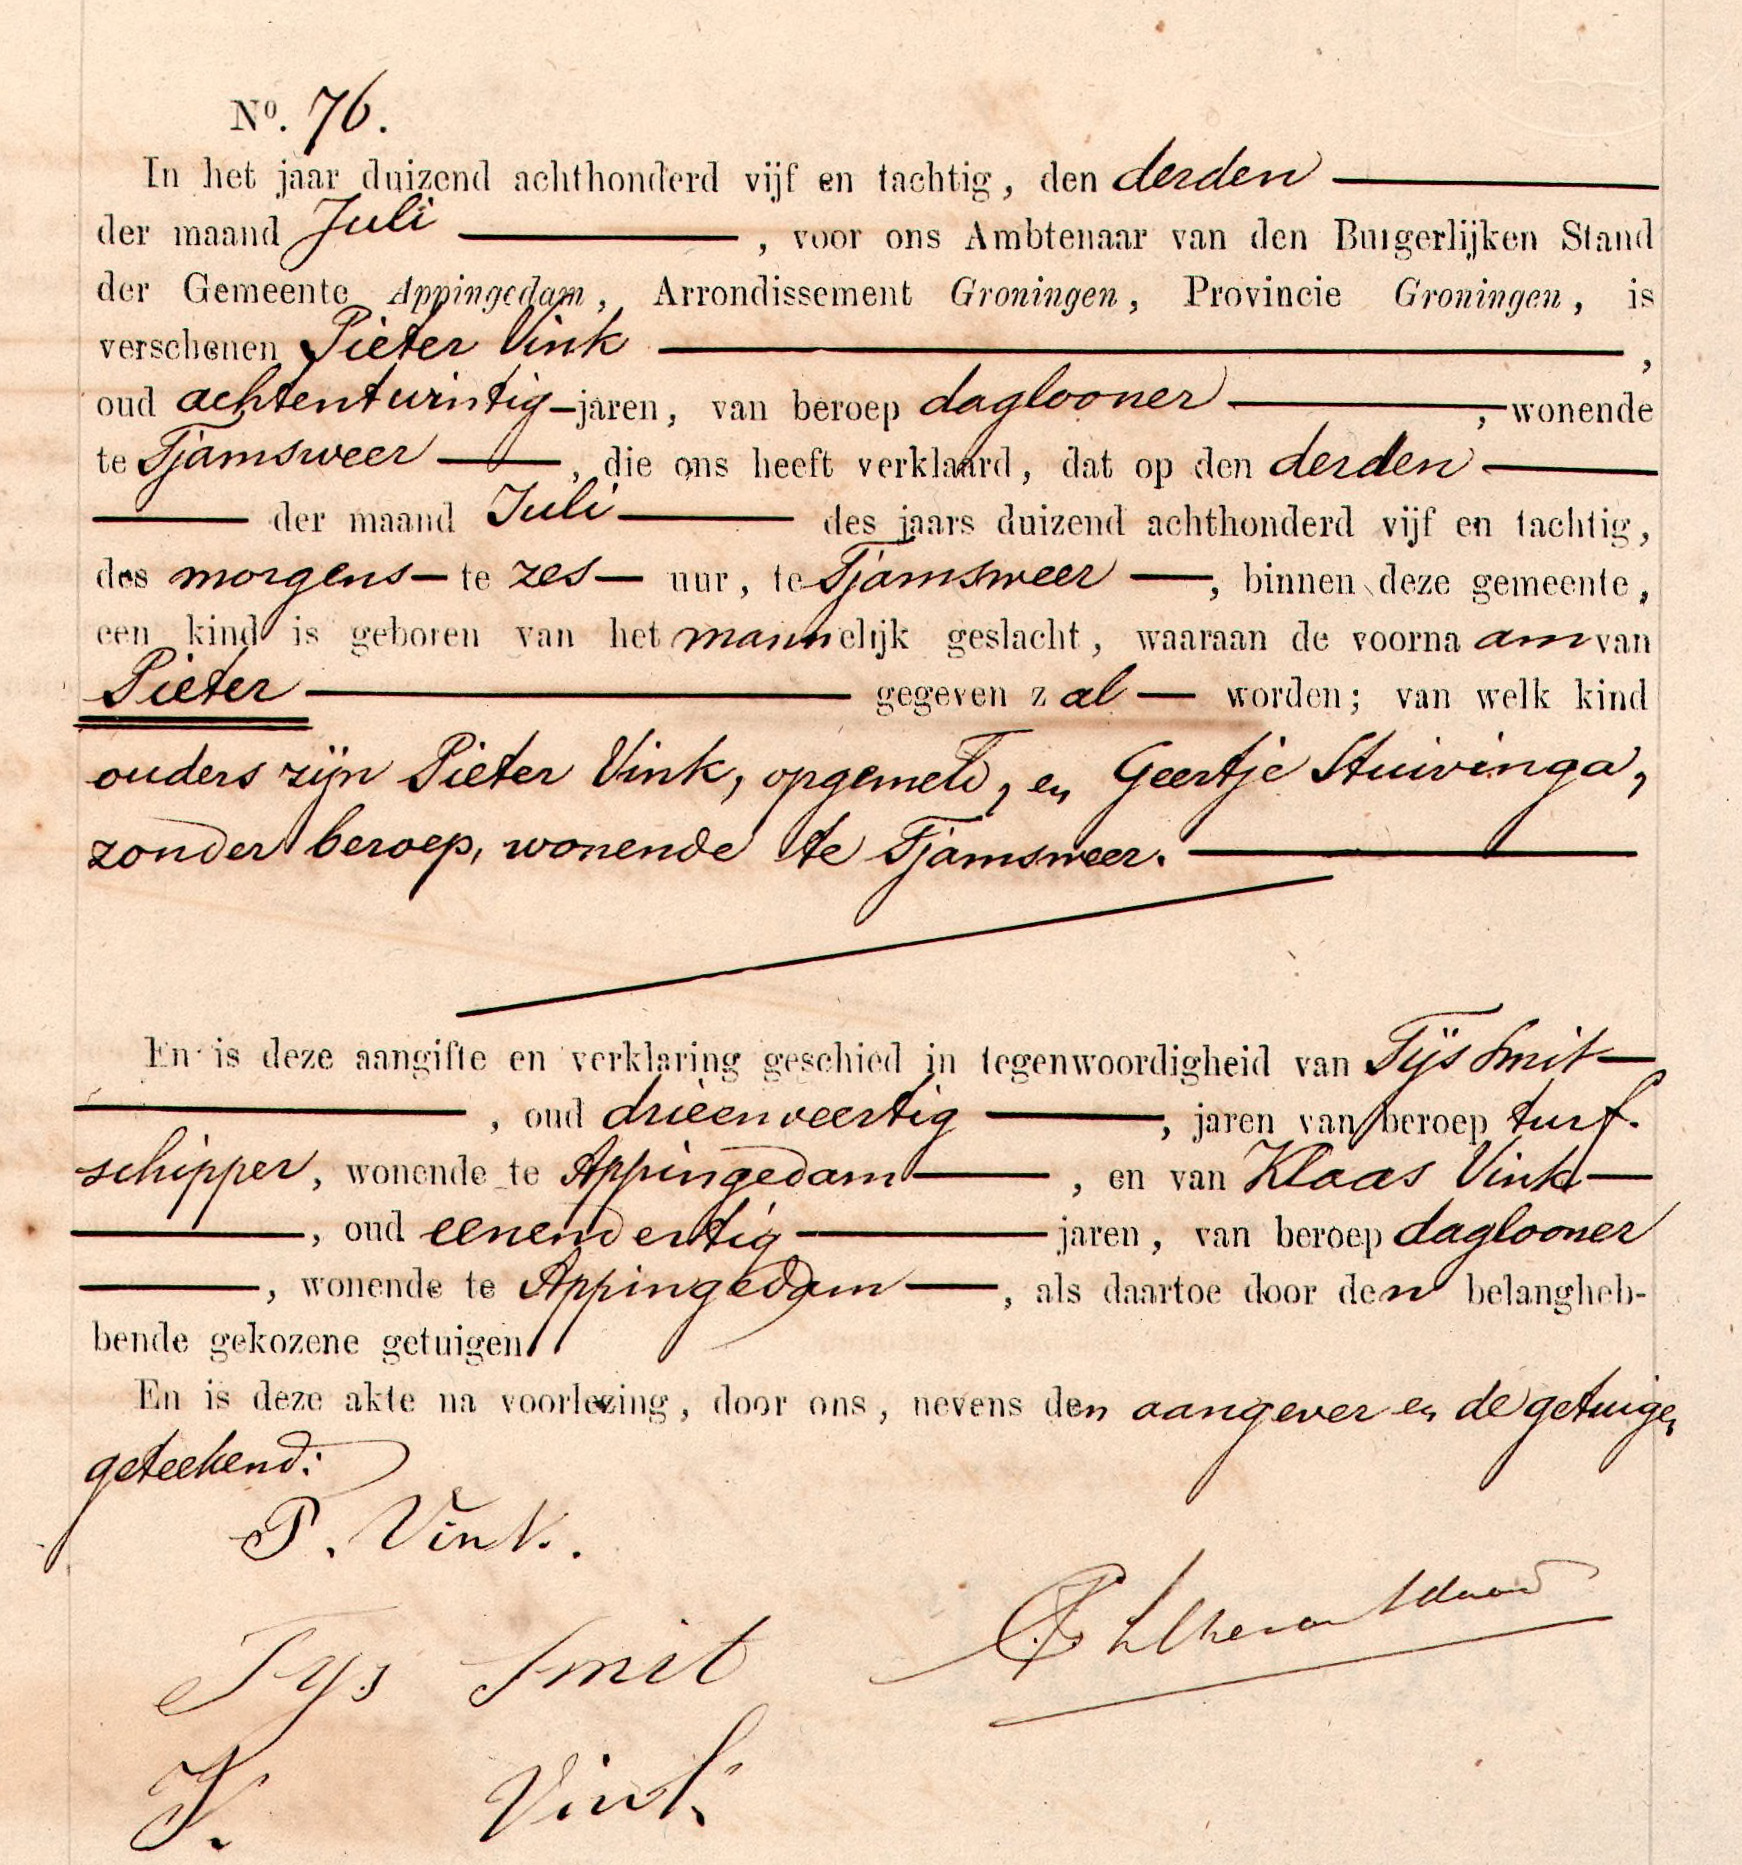 No. 76.
In het jaar duizend achthonderd vijf en tachtig, den derden
der maand Juli, voor ons Ambtenaar van den Burgerlijken Stand
der Gemeente Appingedam, Arrondissement Groningen, Provincie Groningen, is
verschenen Pieter Vink,
oud achtentwintig jaren, van beroep daglooner, wonende
te Tjamsweer, die ons heeft verklaard, dat op den derden
der maand Juli des jaars duizend achthonderd vijf en tachtig,
des morgens te zes uur, te Tjamsweer, binnen deze gemeente,
een kind is geboren van het mannelijk geslacht, waaraan de voornaam van
Pieter gegeven zal worden; van welk kind
ouders zijn Pieter Vink, opgemeld, en Geertje Stuivinga,
zonder beroep, wonende te Tjamsweer.
En is deze aangifte en verklaring geschied in tegenwoordigheid van Tijs Smit
, oud drieenveertig, jaren van beroep turf-
schipper, wonende te Appingedam, en van Klaas Vink
, oud eenendertig jaren, van beroep daglooner
, wonende te Appingedam, als daartoe door den belangheb-
bende gekozene getuigen.
En is deze akte na voorlezing, door ons, nevens den aangever en de getuigen
geteekend:
P. Vink.
Tys Smit
K. Vink.